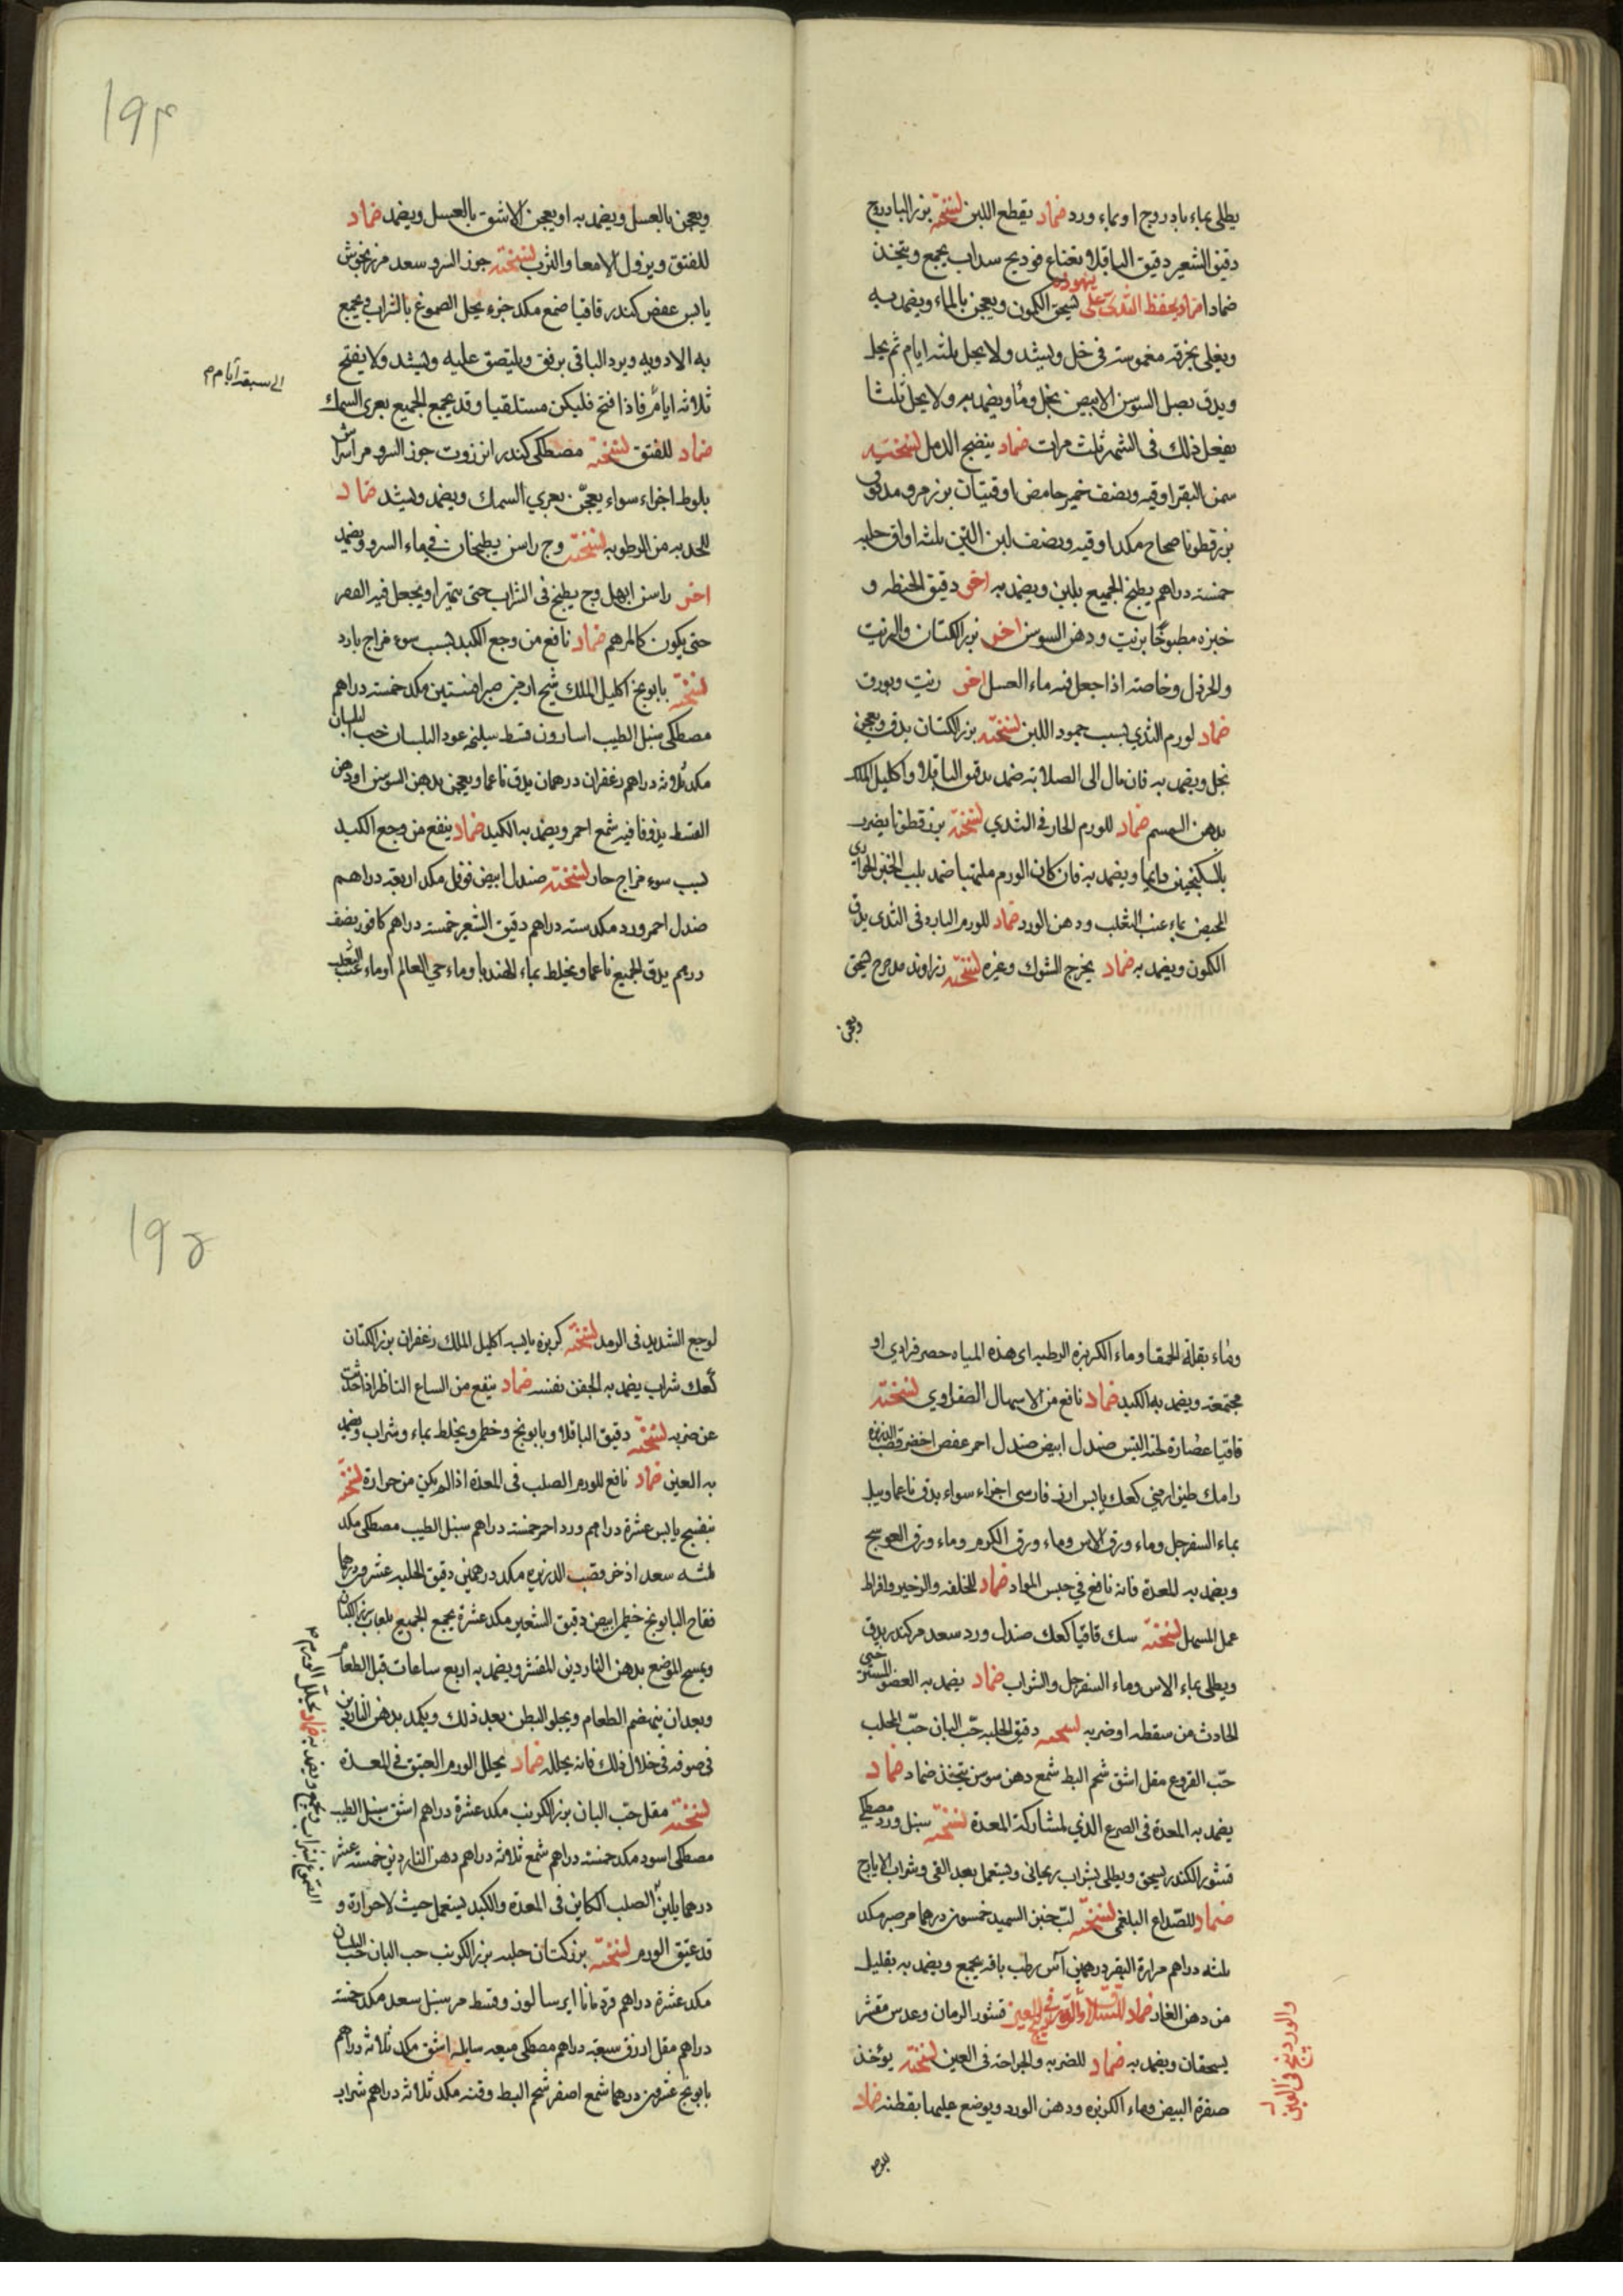 يطلى بماء بادروج او بماء ورد ضماد يقطع اللبن نسخته بزر البادروج
دقيق الشعير دقيق الباقلا نعناع فوديج سداب يجمع ويتخذ
ضمادا اخر او يحفظ الثدى على نهوده يسحق الكمون ويعجن بالماء ويضمد به
ويغلى بخرقه مغموسته فى خل ويشد ولا يحل ثلثه ايام ثم يحل
ويدق بصل السوسن الابيض بخل وماء ويضمد به ولا يحل ثلثا
يفعل ذلك فى الشهر ثلث مرات ضماد ينضج الدمل نسخته
سمن البقر اوقيه ونصف خمير حامض اوقيتان بزر مرو مدقوق
بزر قطونا صحاح مكد اوقيه ونصف لبن التين ثلثه اواق حلبه
خمسته دراهم يطبخ الجميع بلبن ويضمد به اخر دقيق الحنطه و
خبزه مطبوخا بزيت ودهن السوسن اخر بزر الكتان والزيت
والخردل وخاصته اذا جعل فيه ماء العسل اخر زيت وبورق
ضماد لورم الثدي بسبب جمود اللبن نسخته بزر الكتان يدق ويعجن
بخل ويضمد به فان مال الى الصلابته ضمد بدقيق الباقلا واكليل الملك
بدهن السمسم ضماد للورم الحار فى الثدي نسخته بزر قطونا يضرب
بالسكنجبين دايما ويضمد به فان كان الورم ملتهبا ضمد بلب الخبز الحوارى
المحيض بماء عنب الثعلب ودهن الورد ضماد للورم البارد فى الثدى يدق
الكمون ويضمد به ضماد يخرج الشوك وغيره نسخته زراوند مدحرج يسحق
ويعجن
١٩٤
ويعجن بالعسل ويضمد به او يعجن الاشق بالعسل ويضمد ضماد
للفتق ونزول الامعا والثرب نسخته جوز السرو سعد مرزنجوش
يابس عفص كندر قاقيا صمغ مكد جزء يحل الصموغ بالشراب ويجمع
به الادويه ويرد الباقى برفق ويلتصق عليه ويشد ولا يفتح
ثلاثه ايام فاذا فتح فليكن مستلقيا وقد يجمع الجميع بغرى السمك
الى سبعة ايام م
ضماد للفتق نسخته مصطكى كندر انزروت جوز السرو مر اشراس
بلوط اجزاء سواء يعجن بغري السمك ويضمد ويشد ضماد
للحدبه من الرطوبه نسخته وج راسن يطبخان فى ماء السرو ويضمد
اخر راسن ابهل وج يطبخ فى الشراب حتى يتهرا ويجعل فيه
حتى يكون كالمرهم ضماد نافع من وجع الكبد بسبب سوء مزاج بارد
نسخته بابونج اكليل الملك شيح ارمنى صبر افسنتين مكد خمسته دراهم
مصطكى سنبل الطيب اسارون قسط سليخه عود البلسان حب البلسان
مكد ثلاثه دراهم زعفران درهمان يدق ناعما ويعجن بدهن السوسن او دهن
القسط يذوفا فيه شمع احمر ويضمد به الكبد ضماد ينفع من وجع الكبد
بسبب سوء مزاج حار نسخته صندل ابيض فوفل مكد اربعه دراهم
صندل احمر ورد مكد سته دراهم دقيق الشعير خمسته دراهم كافور نصف
درهم يدق الجميع ناعما ويخلط بماء الهندبا وماء حي العالم او ماء عنب الثعلب
وماء بقلة الحمقا وماء الكزبره الرطبه اى هذه المياه حصر فرادى او
مجتمعته ويضمد به الكبد ضماد نافع من الاسهال الصفراوي نسخته
قاقيا عصارة لحية التيس صندل ابيض صندل احمر عفص اخضر قصب الذريره
رامك طين ارمني كعك يابس ارز فارسى اجزاء سواء يدق ناعما ويبل
بماء السفرجل وماء ورق الاس وماء ورق الكرم وماء ورق العوسج
ويضمد به المعدة فانه نافع فى حبس المواد ضماد للخلفه والزحير وافراط
عمل المسهل نسخته سك قاقيا كعك صندل ورد سعد مر كندر يدق
ويطلى بماء الاس وماء السفرجل والشراب ضماد يضمد به العضو
الحادث من سقطه او ضربه نسخته دقيق الحلبه حب البان حب المحلب
حب القروع مقل اشق شحم البط شمع دهن سوسن يتخذ ضماد ضماد
يضمد به المعدة فى الصرع الذي لمشاركة المعدة نسخته سنبل ورد مصطكى
قشور الكندر يسحق ويطلى بشراب ريحانى ويستعمل بعد القى وشراب الايارج
ضماد للصداع البلغمى نسخته لب خبز السميد خمسون درهما مر صبر مكد
ثلثه دراهم مرارة البقر درهمين آس رطب باقه يجمع ويضمد به بقليل
من دهن الغار ضماد قشور الرمان وعدس مقشر
يسحقان ويضمد به ضماد للضربه والجراحه فى العين نسخته يؤخذ
صفرة البيض وماء الكزبره ودهن الورد ويوضع عليها بقطنه ضماد
والوردينج فى العين
١٩٥
لوجع الشديد فى الرمد نسخته كزبره يابسه اكليل الملك زعفران بزر الكتان
كعك شراب يضمد به الجفن نفسه ضماد ينفع من اتساع الناظر اذا حدث
عن ضربه نسخته دقيق الباقلا وبابونج وخطمى ويخلط بماء وشراب ويضمد
به العين ضماد نافع للورم الصلب فى المعدة اذا لم يكن من حرارة نسخته
بنفسج يابس عشرة دراهم ورد احمر خمسته دراهم سنبل الطيب مصطكى مكد
ثلثه سعد اذخر قصب الذريره مكد درهمين دقيق الحلبه عشرون درهما
فقاح البابونج خطمى ابيض دقيق الشعير مكد عشرة يجمع الجميع بلعاب بزر الكتان
ويمسح الموضع بدهن الناردين المقشر ويضمد به اربع ساعات قبل الطعام
وبعد ان ينهضم الطعام ويخلو البطن بعد ذلك ويكمد بدهن الناردين
فى صوفه فى خلال ذلك فانه يحلله ضماد يحلل الورم العتيق فى المعدة
نسخته مقل حب البان بزر الكرنب مكد عشرة دراهم اشق سنبل الطيب
مصطكى اسود مكد خمسته دراهم شمع ثلاثه دراهم دهن الناردين خمسته عشر
درهما يلين الصلب الكاين فى المعدة والكبد يستعمل حيث لا حرارة و
قد عتيق الورم نسخته بزر كتان حلبه بزر الكرنب حب البان حب البلسان
مكد عشرة دراهم قردمانا ايرسا لوز وقسط مر سنبل سعد مكد خمسته
دراهم مقل ازرق سبعه دراهم مصطكى ميعه سايله اشق مكد ثلاثه دراهم
بابونج عشرين درهما شمع اصفر شحم البط وقنه مكد ثلاثه دراهم شراب
الصموغ بشراب ويجمع ويضمد به ضماد يحلل الورم م